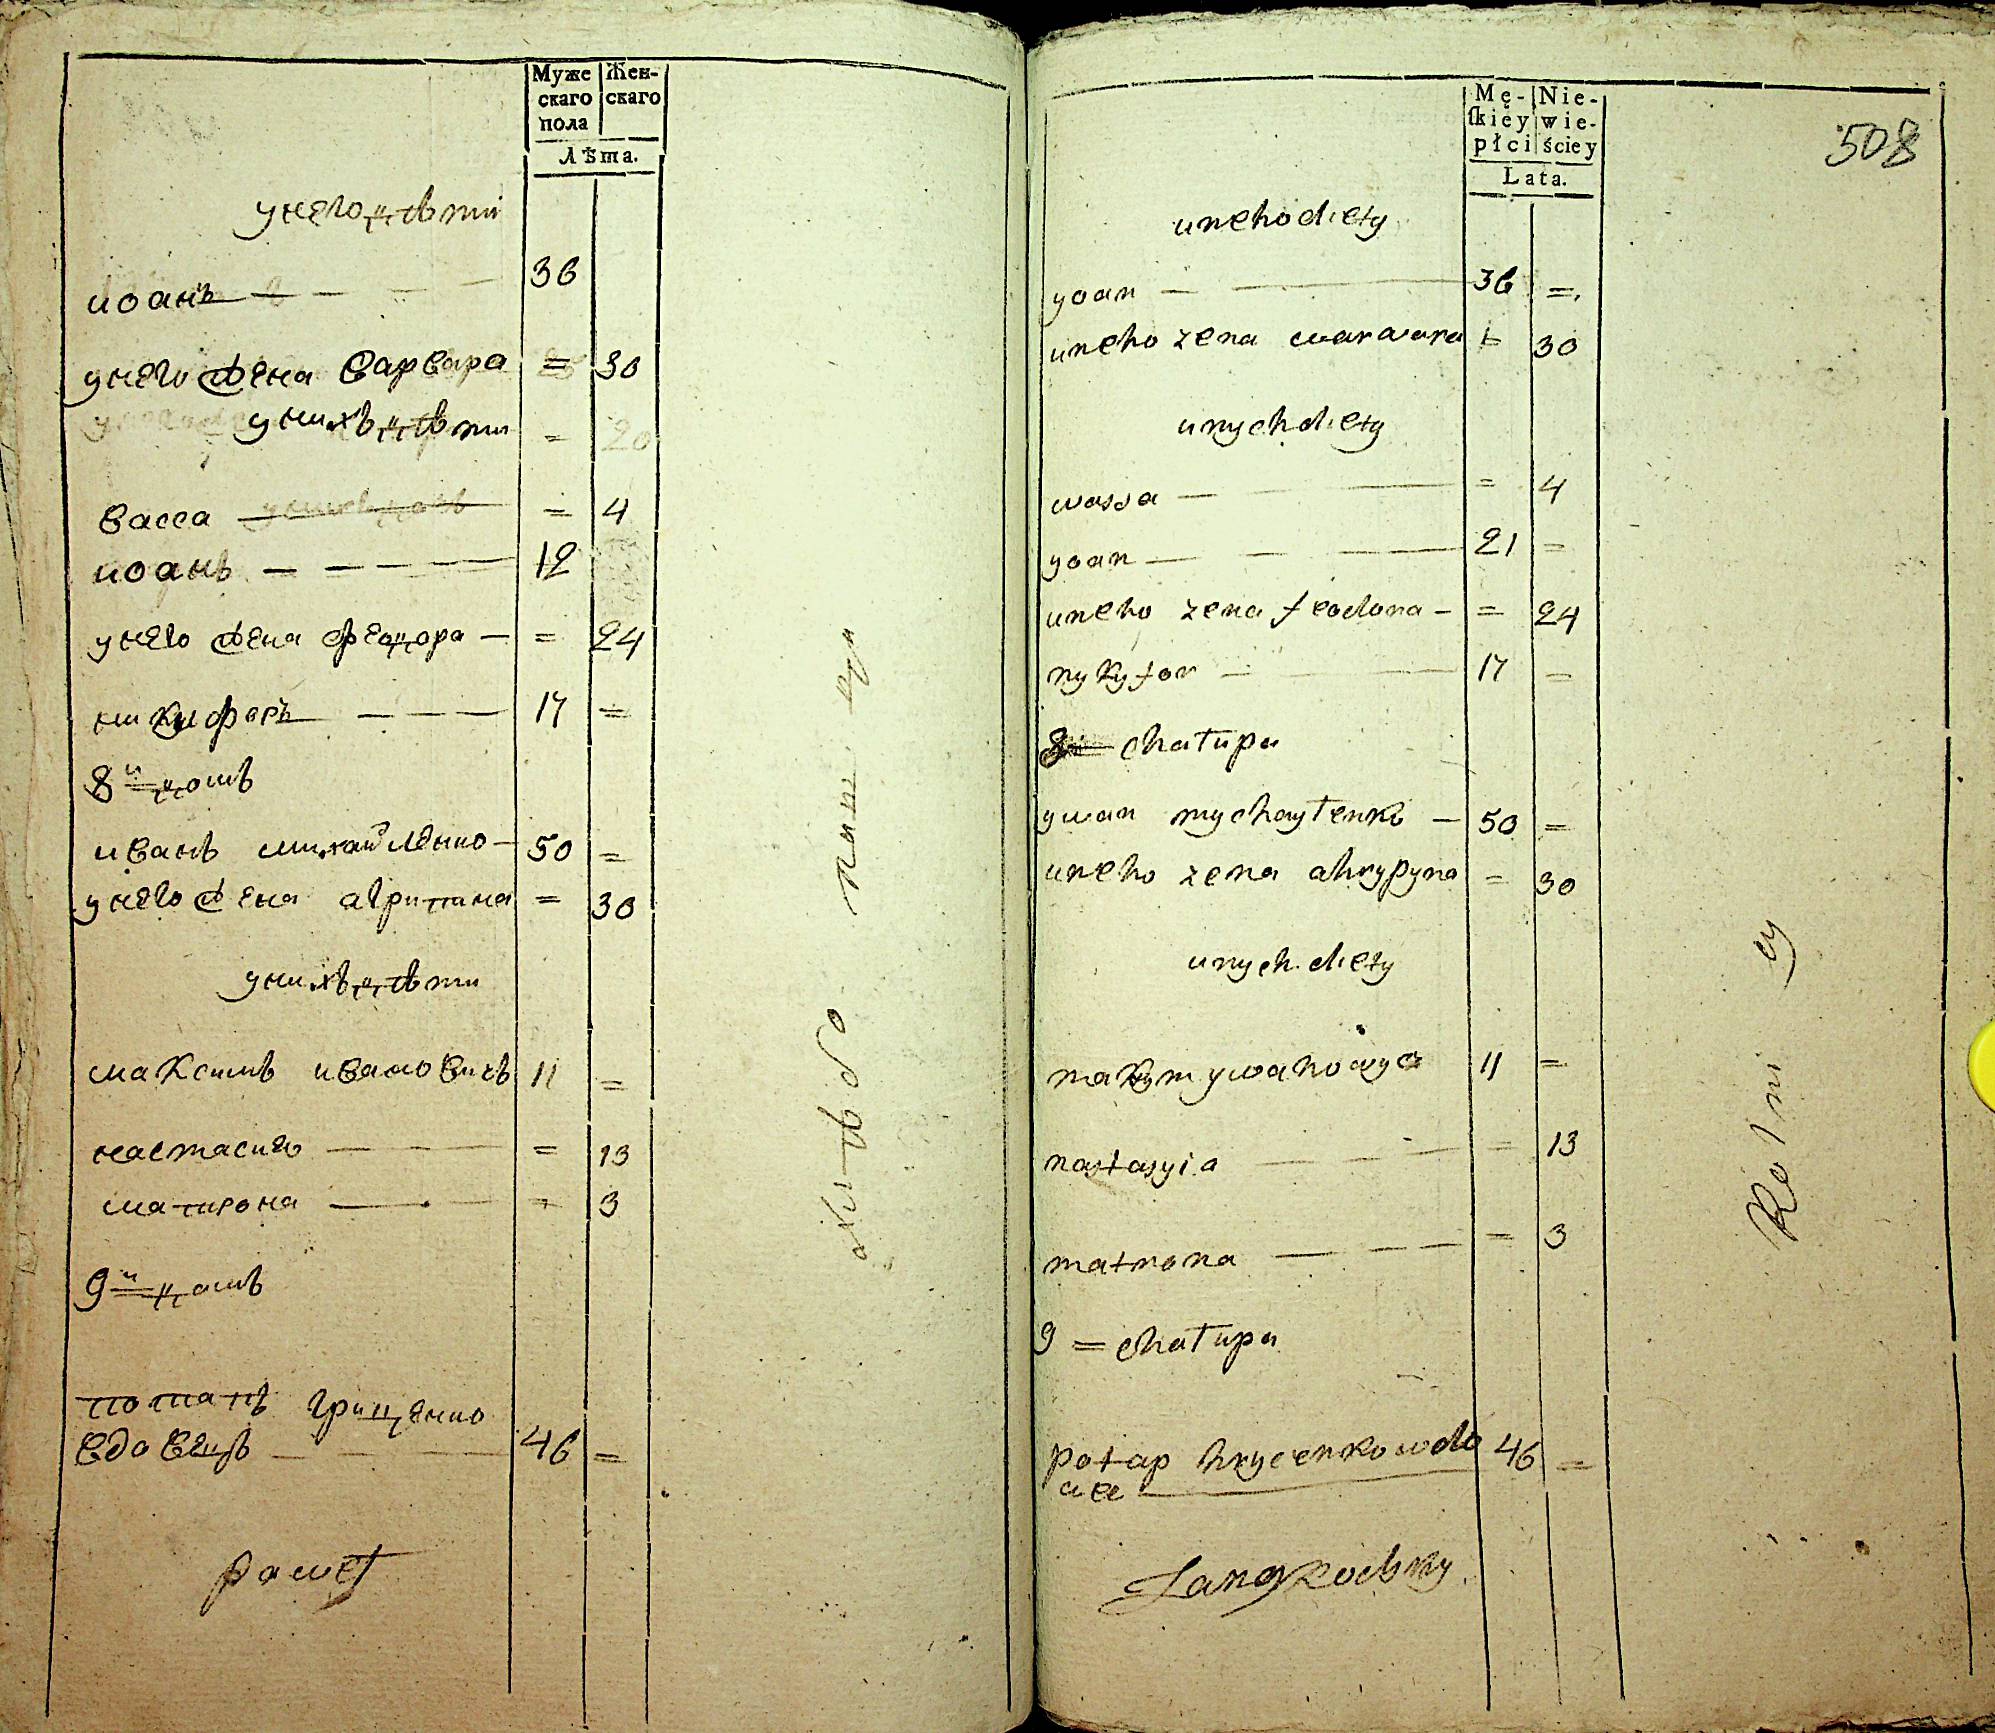 Муже Жен-
скаго скаго
пола
Лѣта.
унего дѣти
иоанъ 36
унего жена варвара = 30
унихъ дѣти =
васса = 4
иоанъ 12
унего жена феодора = 24
никифоръ 17 =
8й домъ
иванъ михайленко 50 =
унего жена агрипина = 30
унихъ дѣти
максимъ ивановичъ 11 =
настасия = 13
матрона = 3
9й домъ
потапъ гриценко
вдовецъ 46 =
paweł
Mę- Nie-
ſkiey wie-
płci ściey
Lata.
508
uneho diety
yoan 36 =
uneho zena warwara = 30
unych diety
wassa = 4
yoan 21 =
uneho zena feodora = 24
nykyfor 17 =
8 chałupa
ywan mychayłenko 50 =
uneho zena ahrypyna = 30
unych diety
makym ywanowycz 11 =
nastasyia = 13
matrona = 3
9 = chałupa
potap hrycenko wdo 46 =
wec
Rolni cy